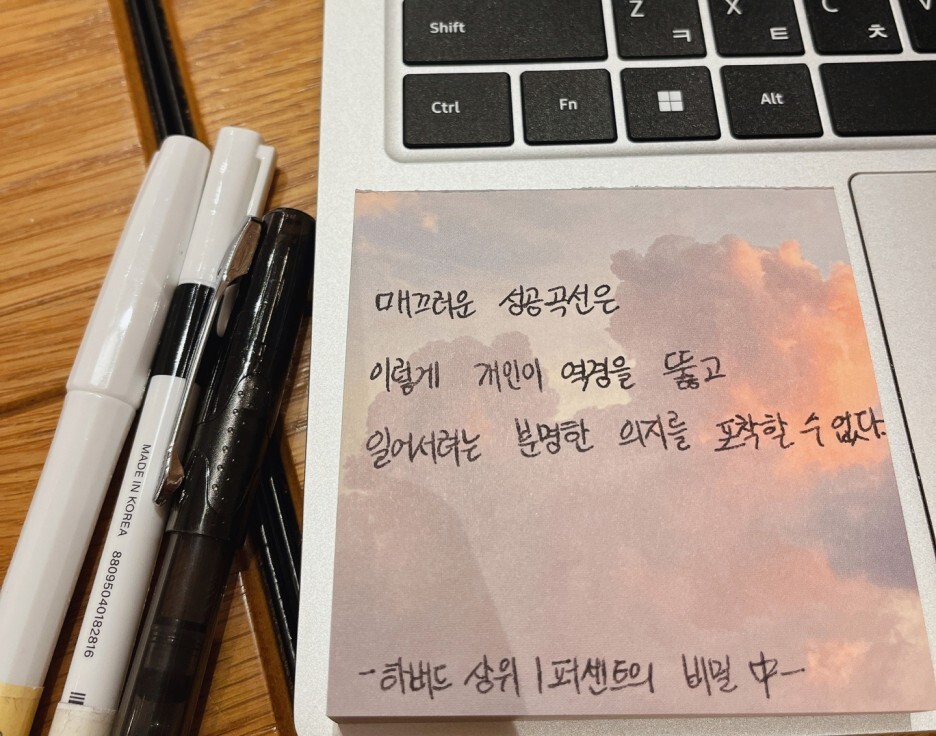 Shift Z ㅋ X ㅌ C ㅊ V
Ctrl Fn Alt
매끄러운 성공곡선은
이렇게 개인이 역경을 뚫고
일어서려는 분명한 의지를 포착할 수 없다.
-하버드 상위 1퍼센트의 비밀 中-
MADE IN KOREA 88095040182816